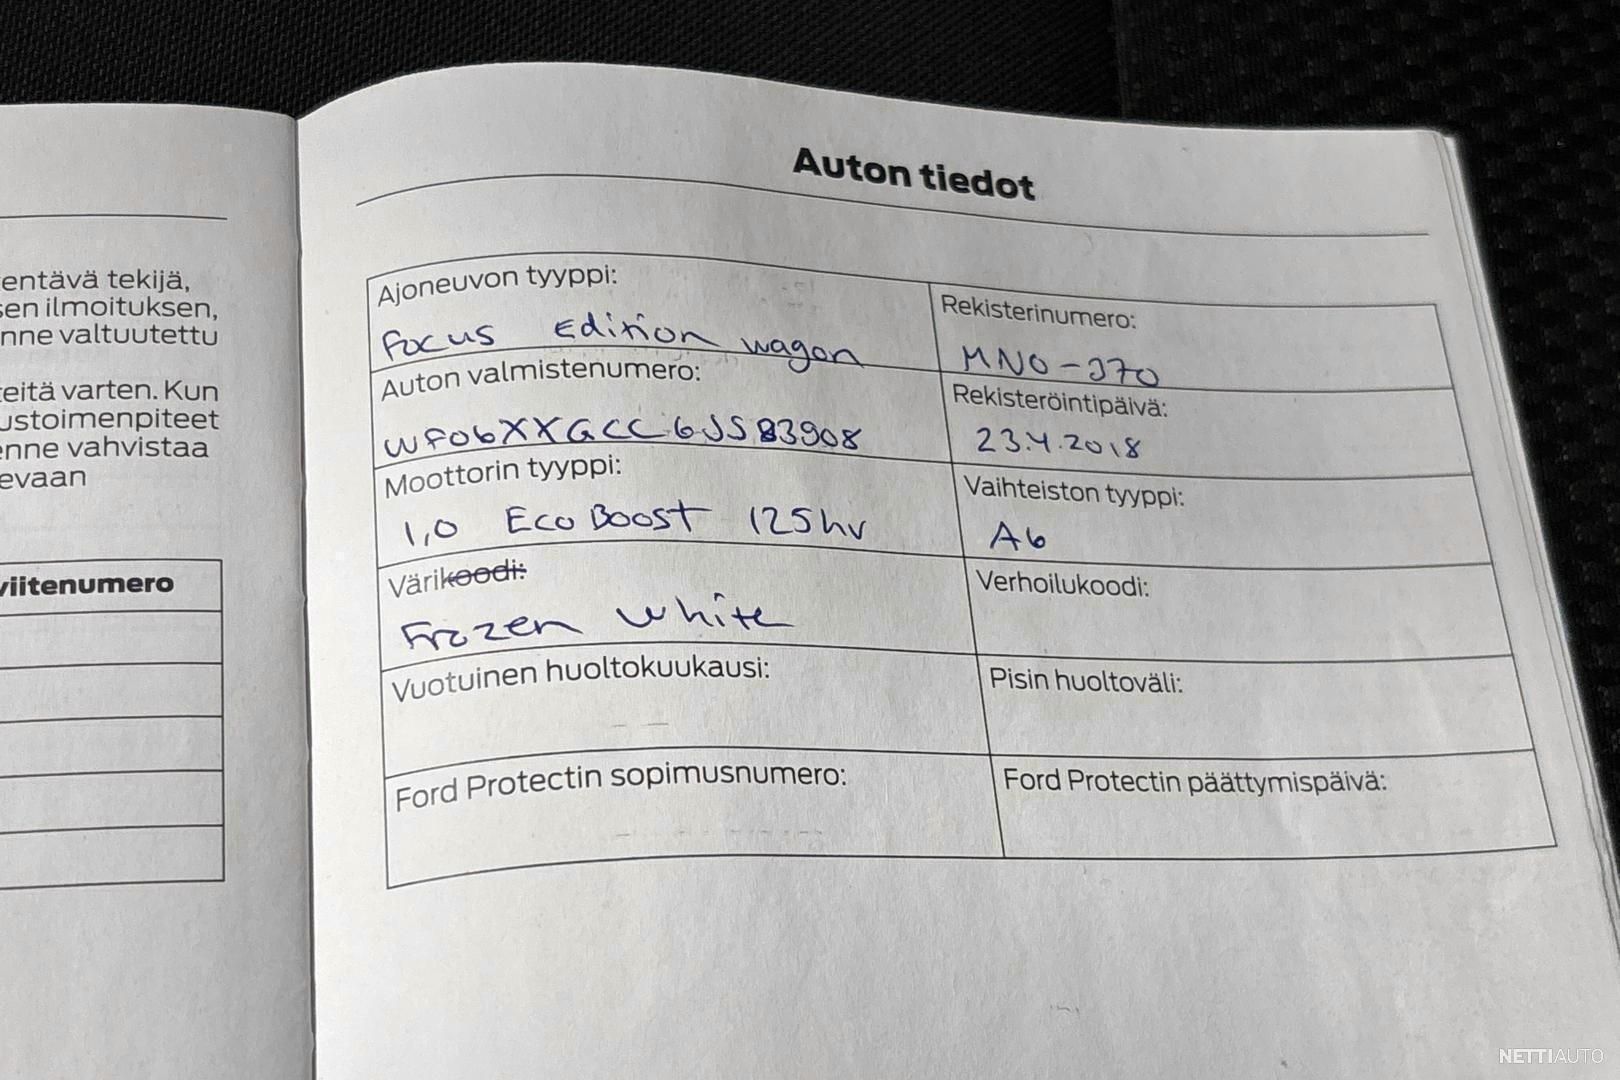 entävä tekijä,
sen ilmoituksen,
nne valtuutettu
teitä varten. Kun
ustoimenpiteet
enne vahvistaa
evaan
viitenumero
Auton tiedot
Ajoneuvon tyyppi:
Focus Edition wagon
Rekisterinumero:
MNO-370
Auton valmistenumero:
WF06XXGCC6JS83908
Rekisteröintipäivä:
23.4.2018
Moottorin tyyppi:
1,0 EcoBoost 125hv
Vaihteiston tyyppi:
A6
Värikoodi:
Frozen white
Verhoilukoodi:
Vuotuinen huoltokuukausi:
Pisin huoltoväli:
Ford Protectin sopimusnumero:
Ford Protectin päättymispäivä:
NETTIAUTO